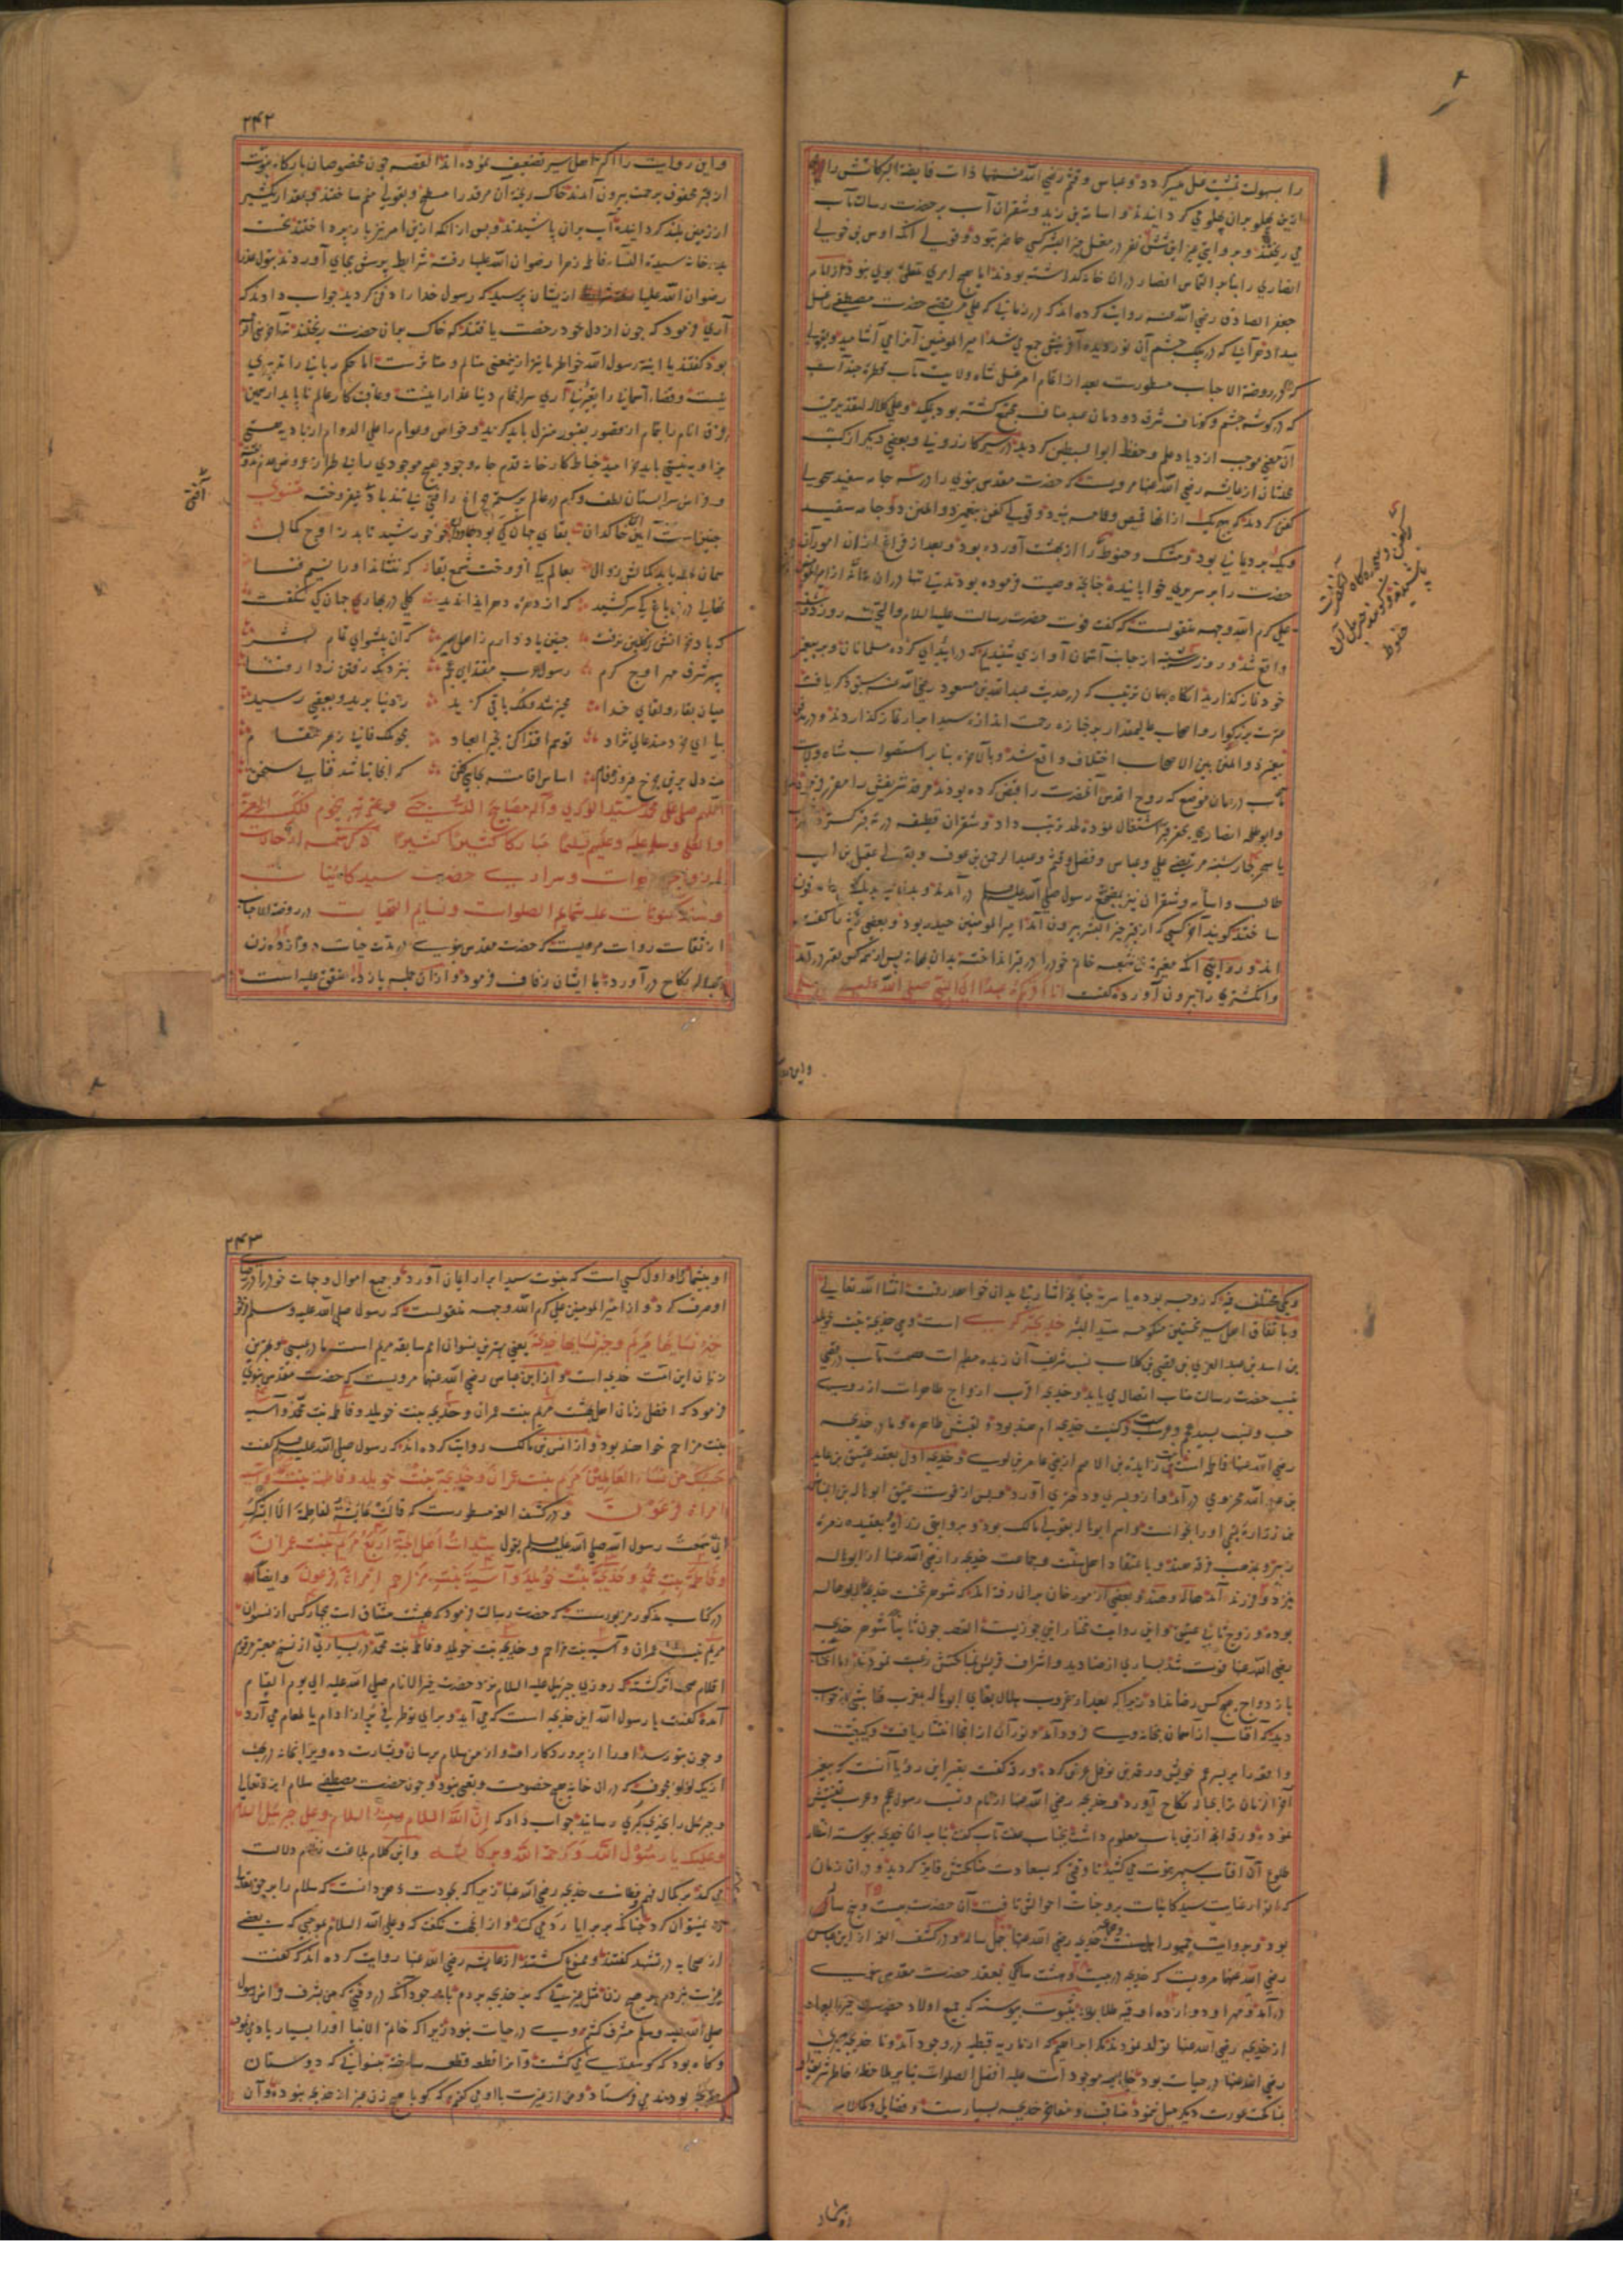 را بسهولت تمشیت غسل میسر گردد و عباس و قثم رضی الله عنهما ذات فایضة البرکاتش را
ازین پهلو بدان پهلو می گردانیدند و اسامه بن زید و شقران آب بر حضرت رسالت مآب
می ریختند و بروایتی غیر این شش نفر در مغسل خیر البشر کسی حاضر نبود و قولی آنکه اوس بن خولی
انصاری را بنابر التماس انصار در آن خانه گذاشته بودند اما هیچ امری متعلق بوی نبود و از امام
جعفر الصادق رضی الله عنه روایت کرده اند که در زمانی که علی مرتضی حضرت مصطفی را غسل
میداد هر آبی که در پلک چشم آن نور دیده آفرینش جمع می شد امیر المومنین آنرا می آشامید و
در روضة الاحباب مسطورست بعد از اتمام امر غسل شاه ولایت مآب قطره چند آب
که در گوشه چشم و ناف شرف دودمان عبد مناف مجتمع گشته بود
آن معنی موجب ازدیاد علم و حفظ ابوالسبطین گردید در سیر کازرونی و بعضی دیگر از کتب
محدثان از عایشه رضی الله عنها مرویست که حضرت مقدس نبوی را در سه جامه سفید سحولیه
کفن کردند که هیچ یک از آنها قمیص و عمامه نبود و قولی کفن پیغمبر ذو المنن دو جامه سفید
و یک برد یمانی بود و مشک و حنوط را از بهشت آورده بود و بعد از فراغ ازان امور آن
حضرت را بر سریری خوابانیده چنانچه وصیت فرموده بودند
علی کرم الله وجهه منقولست که گفت فوت حضرت رسالت علیه السلام والتحیه روز دوشنبه
واقع شد و روز سه شنبه از جانب آسمان آوازی شنیدم که در آئید ای گروه مسلمانان و بر پیغمبر
خود نماز گذارید آنگاه بهمان ترتیب که در حدیث عبد الله بن مسعود رضی الله عنه سبق ذکر یافت
عترت بزرگوار و اصحاب عالیمقدار بر جنازه رحمت اندازه سید ابرار نماز گذاردند و در مدفن
پیغمبر ذو المنن بین الاصحاب اختلاف واقع شد و بالاخره بنابر استصواب شاه ولایت
مآب در همان موضع که روح اقدس آنحضرت را قبض کرده بودند مرقد شریفش را مقرر
و ابو طلحه انصاری بحفر قبر اشتغال نموده لحد ترتیب داد و شقران قطیفه در ته قبر
علی و عباس و فضل و قثم و عبد الرحمن بن عوف و بقولی عقیل بن ابی
طالب و اسامه و شقران نیز بمضجع رسول صلی الله علیه وسلم در آمدند
ساختند گویند آخر کسی که از قبر خیر البشر بیرون آمد امیر المومنین حیدر بود و بعضی قثم را گفته
اند و روایتی آنکه مغیرة بن شعبه خاتم خود را در قبر انداخته بدان بهانه پس از همه کس بقبر در آمد
و انگشتری را بیرون آورده گفت انا آخرکم عهدا الی النبی صلی الله علیه وسلم
و این روایت
۲۴۲
و این روایت را اکثر اهل سیر تضعیف نموده اند القصه چون مخصوصان بارگاه نبوت
از قبر محفوف برحمت بیرون آمدند خاک ریخته آن مرقد را مسطح و بقولی مسنم ساختند و بمقدار یکشبر
از زمین بلند گردانیده آب بران پاشیدند و پس از آنکه ازین امر نیز باز پرداختند نخست
بدر خانه سیدة النساء فاطمه زهرا رضوان الله علیها رفته شرایط پرسش بجای آوردند بتول عذرا
رضوان الله علیها از یشان پرسید که رسول خدا را دفن کردید جواب دادند که
آری فرمود که چون از دل خود رخصت یافتید که خاک بران حضرت ریختید
بود گفتند یا ابنة رسول الله خواطر ما نیز ازینمعنی متالم و متاثرست اما حکم ربانی را تدبیری
نیست و قضاء آسمانی را تغییری نی آری سرانجام دنیا غدار اینست و عاقبت کار عالم ناپایدار همین
فرق انام را بتمام از قصور بقبور منزل باید گزید و خواص و عوام را علی الدوام از بادیه هستی
بزاویه نیستی باید خرامید خیاط کارخانه قدم جامه وجود هیچ موجودی را بی طراز عروض عدم ندوخته
و فراش سرابستان لطف و کرم در عالم چراغ رافتی بی تندباد نیفروخته مثنوی
چنینست آیین این خاکدان بقای جهان کی بود جاودان خورشید تابد در اوج کمال
همان لحظه یابد کمالش زوال بعالم یکی افروخت شمع بقا که ننشاند او را نسیم فنا
نهالی درین باغ کی سر کشید که از دهره دهر ایذا ندید گلی در بهاری جهان کی شکفت
که باد خزانش نرفت چنین یاد دارم ز اهل سیر که آن پیشوای تمام بشر
سپهر شرف مهر اوج کرم رسول عرب مقتدای عجم بنزدیک رفتن ز دار فنا
میان بقا و لقای خدا مخیر شد و ملک باقی گزید ز دنیا برید و بعقبی رسید
بیا ای خردمند عالی نژاد تو هم اقتدا کن بخیر العباد مجو ملک فانی ز هر مقام
منه دل برین چرخ فیروزه فام اساس اقامت بجایی فکن که آنجا نباشد فنا بی سخن
اللهم صل علی محمد سید الوری و آله مصابیح الدجی و عترته نجوم فلک
وسلم علیه و علیهم تسلیما مبارکا کثیرا کثیرا ذکر شمه از حالات
ازواج و سراری حضرت سید کاینات
علیه شمایم الصلوات و نسایم التحیات در روضة الاحباب
از ثقات روات مرویست که حضرت مقدس نبوی در مدت حیات دوازده زن
بحباله نکاح در آورده با ایشان زفاف فرمود و ازان جمله یازده متفق علیه است
و یکی مختلف فیه که زوجه بوده یا سریه چنانچه اشارتی بدان خواهد رفت انشا الله تعالی
و باتفاق اهل سیر نخستین منکوحه سید البشر خدیجه کبری است و هی خدیجة بنت خویلد
بن اسد بن عبد العزی بن قصی بن کلاب نسب شریف آن زبده مطهرات عصمت مآب در قصی
بنسب حضرت رسالت مناب اتصال می یابد و خدیجه اقرب ازواج طاهرات از روی
حسب و نسب بسید عجم و عرب است و کنیت خدیجه ام هند بود و لقبش طاهره و مادر خدیجه
رضی الله عنها فاطمه است بنت زایدة بن الاصم از بنی عامر بن لوی و خدیجه اول بعقد عتیق بن عاید
بن عبد الله مخزومی در آمد و از وی پسری و دختری آورد و پس از فوت عتیق ابو هاله بن النباش
بن زراره تمیمی او را بخواست و اسم ابو هاله بقولی مالک بود و بروایتی زراره و بعقیده زمره
و بمذهب فرقه هند و باعتقاد اهل سنت و جماعت خدیجه را رضی الله عنها از ابو هاله
نیز دو فرزند آمد هاله و هند و بعضی از مورخان بدان رفته اند که شوهر نخست خدیجه ابو هاله
بوده و زوج ثانی عتیق و این روایت مختار ابن جوزیست القصه چون ثانیا شوهر خدیجه
رضی الله عنها فوت شد بسیاری از صنادید و اشراف قریش بمناکحتش رغبت نمودند اما آنجناب
بازدواج هیچ کس رضا نداد زیرا که بعد از غروب هلال بقای ابو هاله بمغرب فنا شبی در خواب
دید که آفتاب از آسمان بخانه وی فرود آمد و نور آن از آنجا انتشار یافت و کیفیت
واقعه را بر پسر عم خویش ورقة بن نوفل عرض کرده ورقه گفت تعبیر این رؤیا آنست که پیغمبر
آخر الزمان ترا بحباله نکاح آورد و خدیجه رضی الله عنها از نام و نسب رسول عجم و عرب تفتیش
نموده ورقه آنچه ازین باب معلوم داشت بجناب عفت مآب گفت بنابران خدیجه پیوسته انتظار
طلوع آن آفتاب سپهر نبوت می کشید تا وقتی که بسعادت مناکحتش فایز گردید و دران زمان
که انوار عنایت سید کاینات بر وجنات احوالش تافت آن حضرت بیست و پنج ساله
۲۵
بود و بروایت جمهور اهل سنت و جماعت خدیجه رضی الله عنها چهل ساله و در کشف الغمه از ابن عباس
رضی الله عنهما مرویست که خدیجه در بیست و هشت سالگی بعقد حضرت مقدس نبوی
در آمد و مهر او دوازده اوقیه طلا بود بثبوت پیوسته که جمیع اولاد حضرت خیر العباد
از خدیجه رضی الله عنها تولد نمودند مگر ابراهیم که از ماریه قبطیه در وجود آمد و تا خدیجه کبری
رضی الله عنها در حیات بود خواجه موجودات علیه افضل الصلوات بنابر ملاحظه خاطر شریفش
بمناکحت عورت دیگر میل ننمود مناقب و مفاخر خدیجه بسیارست و فضایل و کمالات
او بیشمار
۲۴۳
او بیشمار و اول کسی است که بنبوت سید ابرار ایمان آورد و جمیع اموال و جهات خود را در رضای
او صرف کرد و از امیر المومنین علی کرم الله وجهه منقولست که رسول صلی الله علیه وسلم فرمود
خیر نسائها مریم و خیر نسائها خدیجة یعنی بهترین نسوان امم سابقه مریم است مادر عیسی و بهترین
زنان این امت خدیجه است و از ابن عباس رضی الله عنهما مرویست که حضرت مقدس نبوی
فرمود که افضل زنان اهل بهشت مریم بنت عمران و خدیجه بنت خویلد و فاطمه بنت محمد و آسیه
بنت مزاحم خواهند بود و از انس بن مالک روایت کرده اند که رسول صلی الله علیه وسلم گفت
حسبک من نساء العالمین مریم بنت عمران و خدیجة بنت خویلد و فاطمة بنت محمد و آسیه
امراة فرعون و در کشف الغمه مسطورست که قالت عایشة لفاطمة الا ابشرک
انی سمعت رسول الله صلی الله علیه وسلم یقول سیدات اهل الجنة اربع مریم بنت عمران
و فاطمة بنت محمد و خدیجة بنت خویلد و آسیة بنت مزاحم امراة فرعون و ایضا
در کتاب مذکور مزبورست که حضرت رسالت فرمود که بهشت مشتاق است بچهار کس از نسوان
مریم بنت عمران و آسیه بنت مزاحم و خدیجه بنت خویلد و فاطمه بنت محمد در بسیاری از نسخ معتبره مرقوم
اقلام صحت اثر گشته که روزی جبرئیل علیه السلام نزد حضرت خیر الانام صلی الله علیه الی یوم القیام
آمده گفت یا رسول الله این خدیجه است که می آید و برای تو ظرفی پر از ادام یا طعام می آرد
و چون بتو رسد او را از پروردگار او و از من سلام برسان و بشارت ده ویرا بخانه در بهشت
از یک لؤلؤ مجوف که دران خانه هیچ خصومت و تعبی نبود و چون حضرت مصطفی سلام ایزد تعالی
و جبرئیل را بخدیجه کبری رسانید جواب داد که ان الله هو السلام و منه السلام و علی جبرئیل السلام
و علیک یا رسول الله السلام و رحمة الله و برکاته و این کلام بلاغت نظام دلالت
می کند بر کمال فهم و فطانت خدیجه رضی الله عنها زیرا که بجودت ذهن دانست که سلام را بر حق تعالی
رد نمیتوان کرد چنانکه بر برایا رد می کنند و از انجهت نگفت که و علی الله السلام بموجبی که بعضی
از صحابه در تشهد گفتند و ممنوع گشتند از عایشه رضی الله عنها روایت کرده اند که گفت
غیرت نبردم بر هیچ زن مثل غیرتی که بر خدیجه بردم با وجود آنکه در وقتی که من بشرف فراش رسول
صلی الله علیه وسلم مشرف گشتم وی در حیات نبود زیرا که خاتم الانبیا او را بسیار یاد می فرمود
و گاه بود که گوسفندی می کشت و آنرا قطعه قطعه ساخته بنسوانی که دوستان
خدیجه بودند می فرستاد و من از غیرت با او می گفتم که گویا هیچ زن غیر از خدیجه نبوده و آن